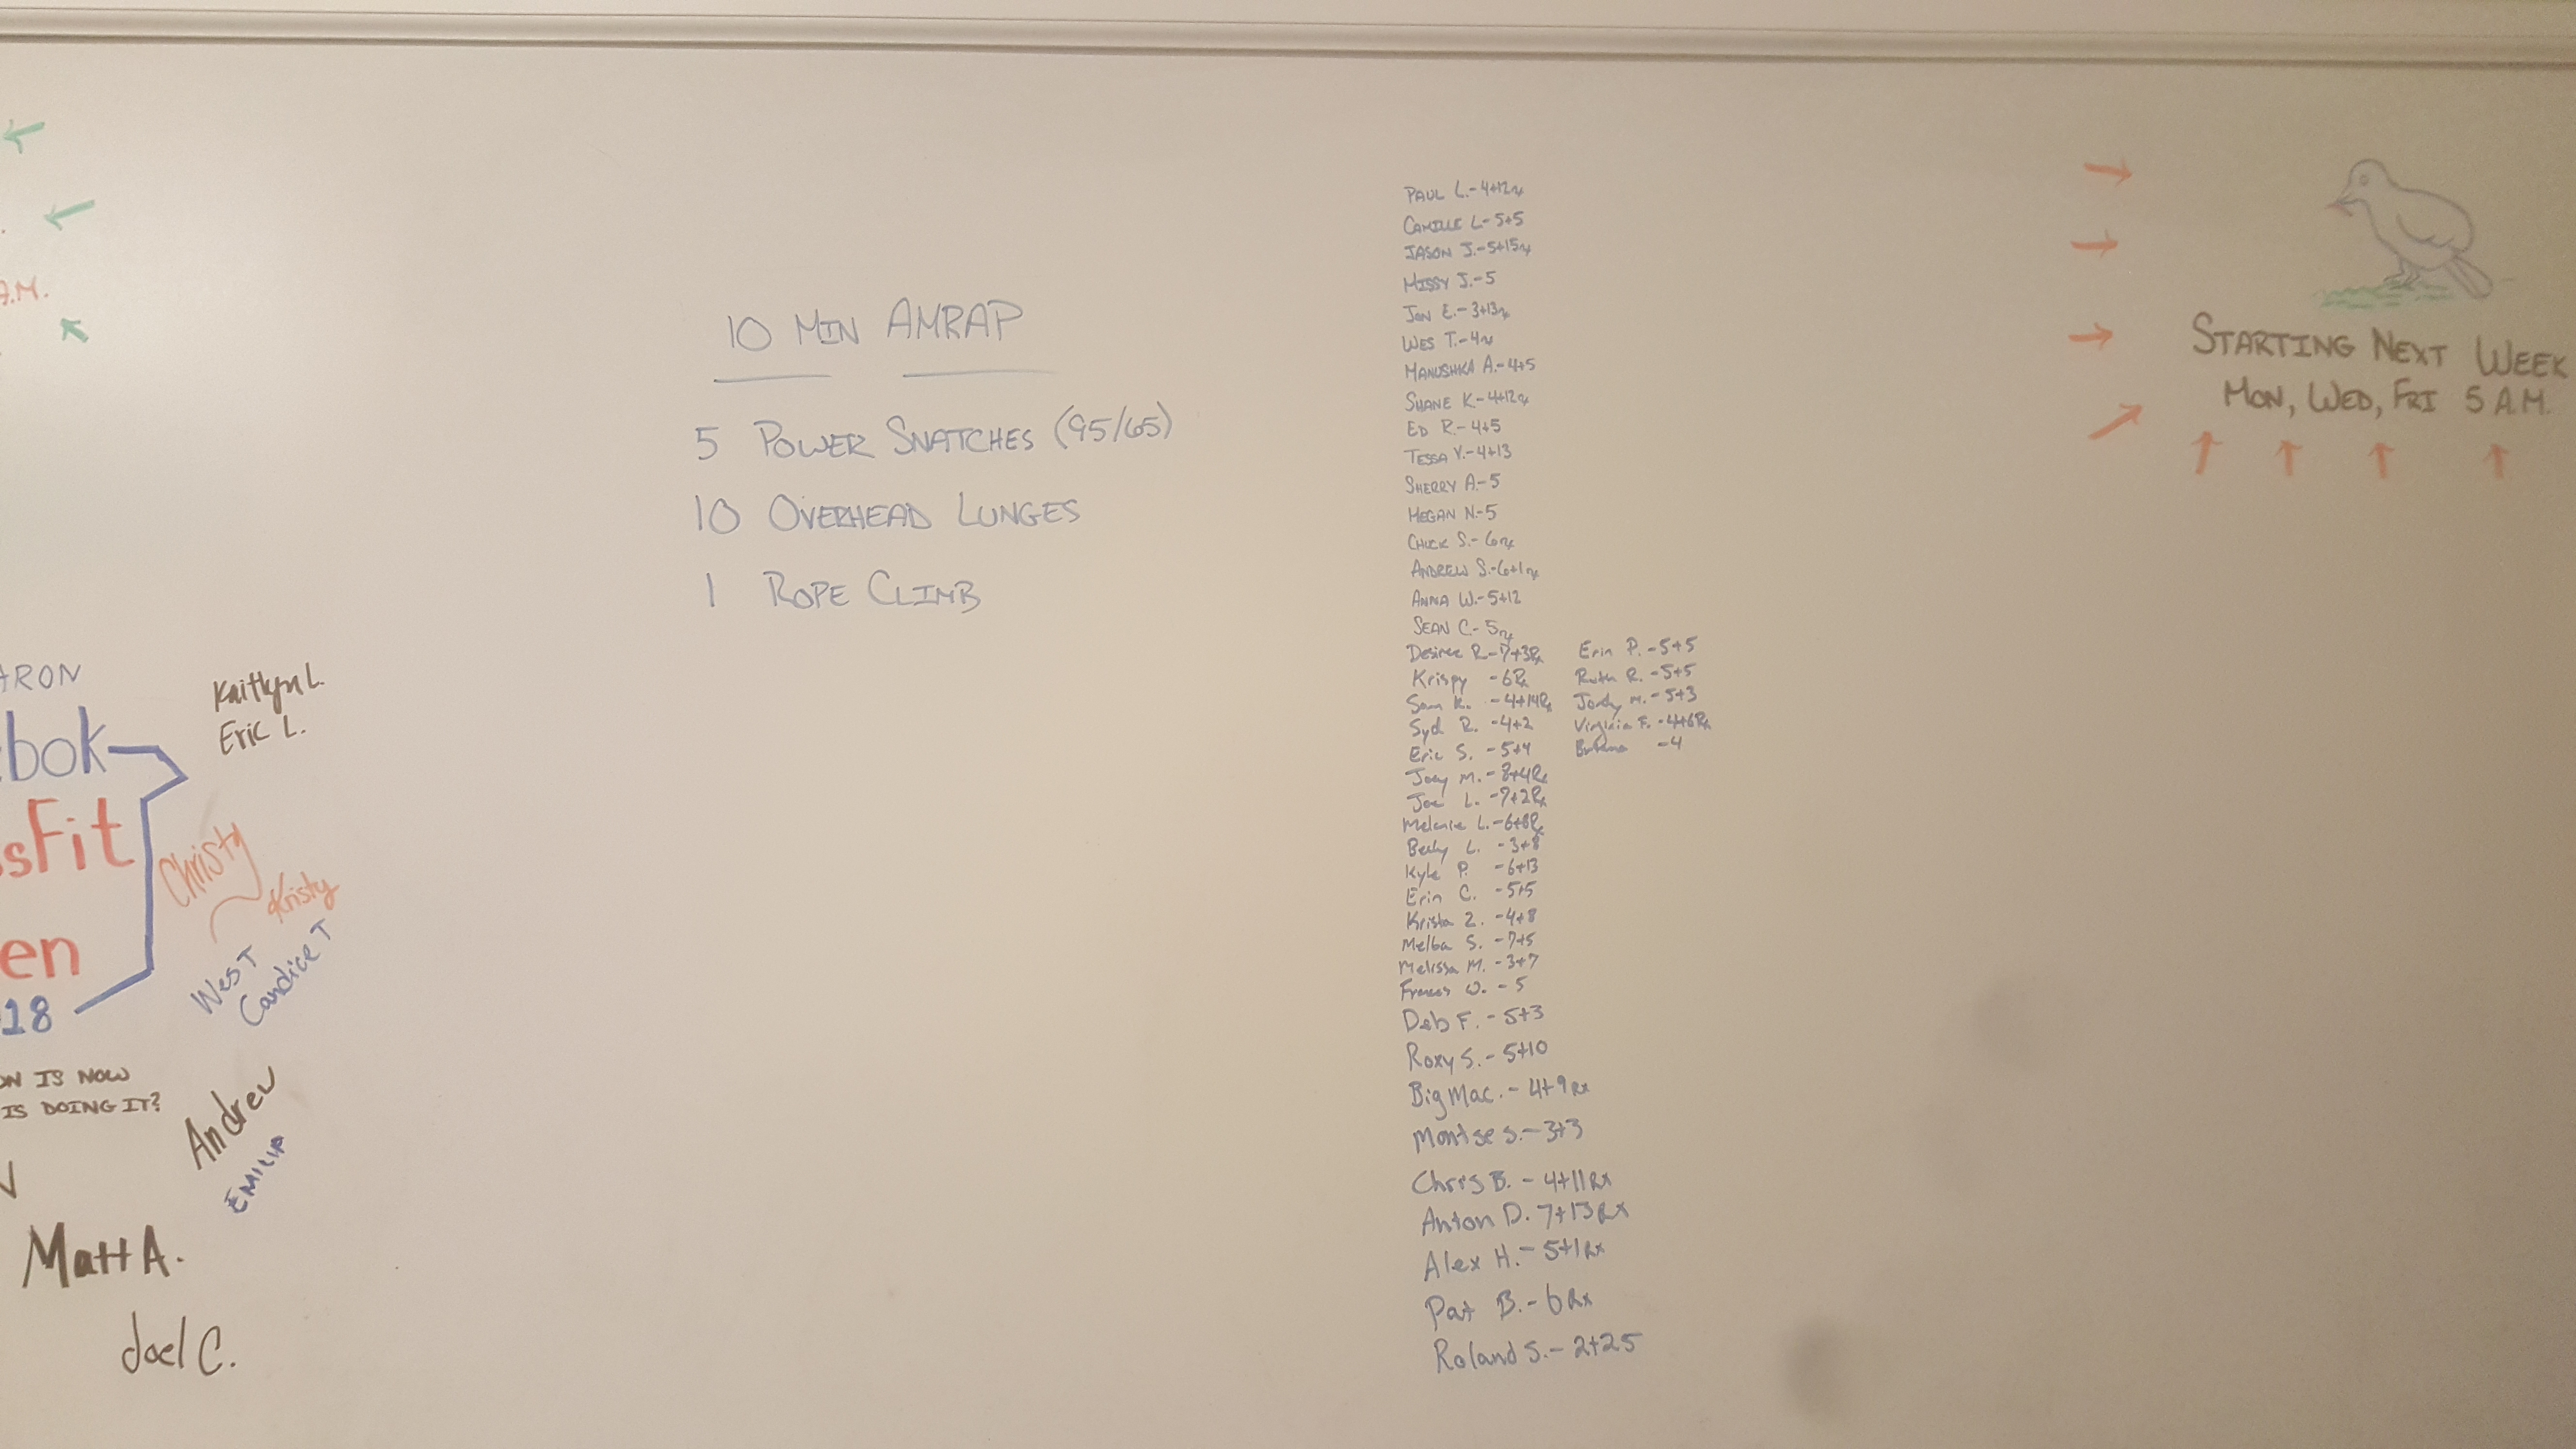 A.M.
ARON
bok
sFit
en
18
ON IS NOW
IS DOING IT?
Kaitlyn L.
Eric L.
Christy
Kristy
Wes T
Candice T
Andrew
EMILIA
Matt A.
Joel C.
10 MIN AMRAP
5 POWER SNATCHES (95/65)
10 OVERHEAD LUNGES
1 ROPE CLIMB
PAUL L.-4+12rx
CAMILLE L-5+5
JASON J.-5+15rx
MISSY J.-5
JON E.-3+13rx
WES T.-4rx
MANUSHKA A.-4+5
SHANE K-4+12rx
ED R.-4+5
TESSA Y.-4+13
SHERRY A-5
MEGAN N.-5
CHUCK S.-6rx
ANDREW S.-6+1rx
ANNA W.-5+12
SEAN C.-5rx
Desiree R-7+3Rx
Krispy -6Rx
Sam K. -4+14Rx
Syd R. -4+2
Eric S. -5+4
Joey M. -8+4Rx
Joe L. -7+2Rx
Melanie L.-6+8Rx
Becky L. -3+8
Kyle P. -6+13
Erin C. -5+5
Krista Z. -4+8
Melba S. -7+5
Melissa M. -3+7
Frances W. -5
Deb F. -5+3
Roxy S.-5+10
Big Mac.-4+9Rx
Montse S.-3+3
Chris B. -4+11Rx
Anton D. 7+13Rx
Alex H.-5+1Rx
Pat B.-6Rx
Roland S.-2+25
Erin P.-5+5
Ruth R. -5+5
Jordy M.-5+3
Virginia F. -4+6Rx
-4
STARTING NEXT WEEK
MON, WED, FRI 5 A.M.